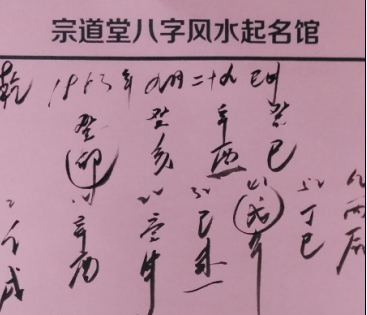 宗道堂八字风水起名馆
乾 1963年 九月二十九 巳时
癸卯 癸亥 辛酉 癸巳
壬戌 辛酉 庚申 己未 戊午 丁巳 丙辰